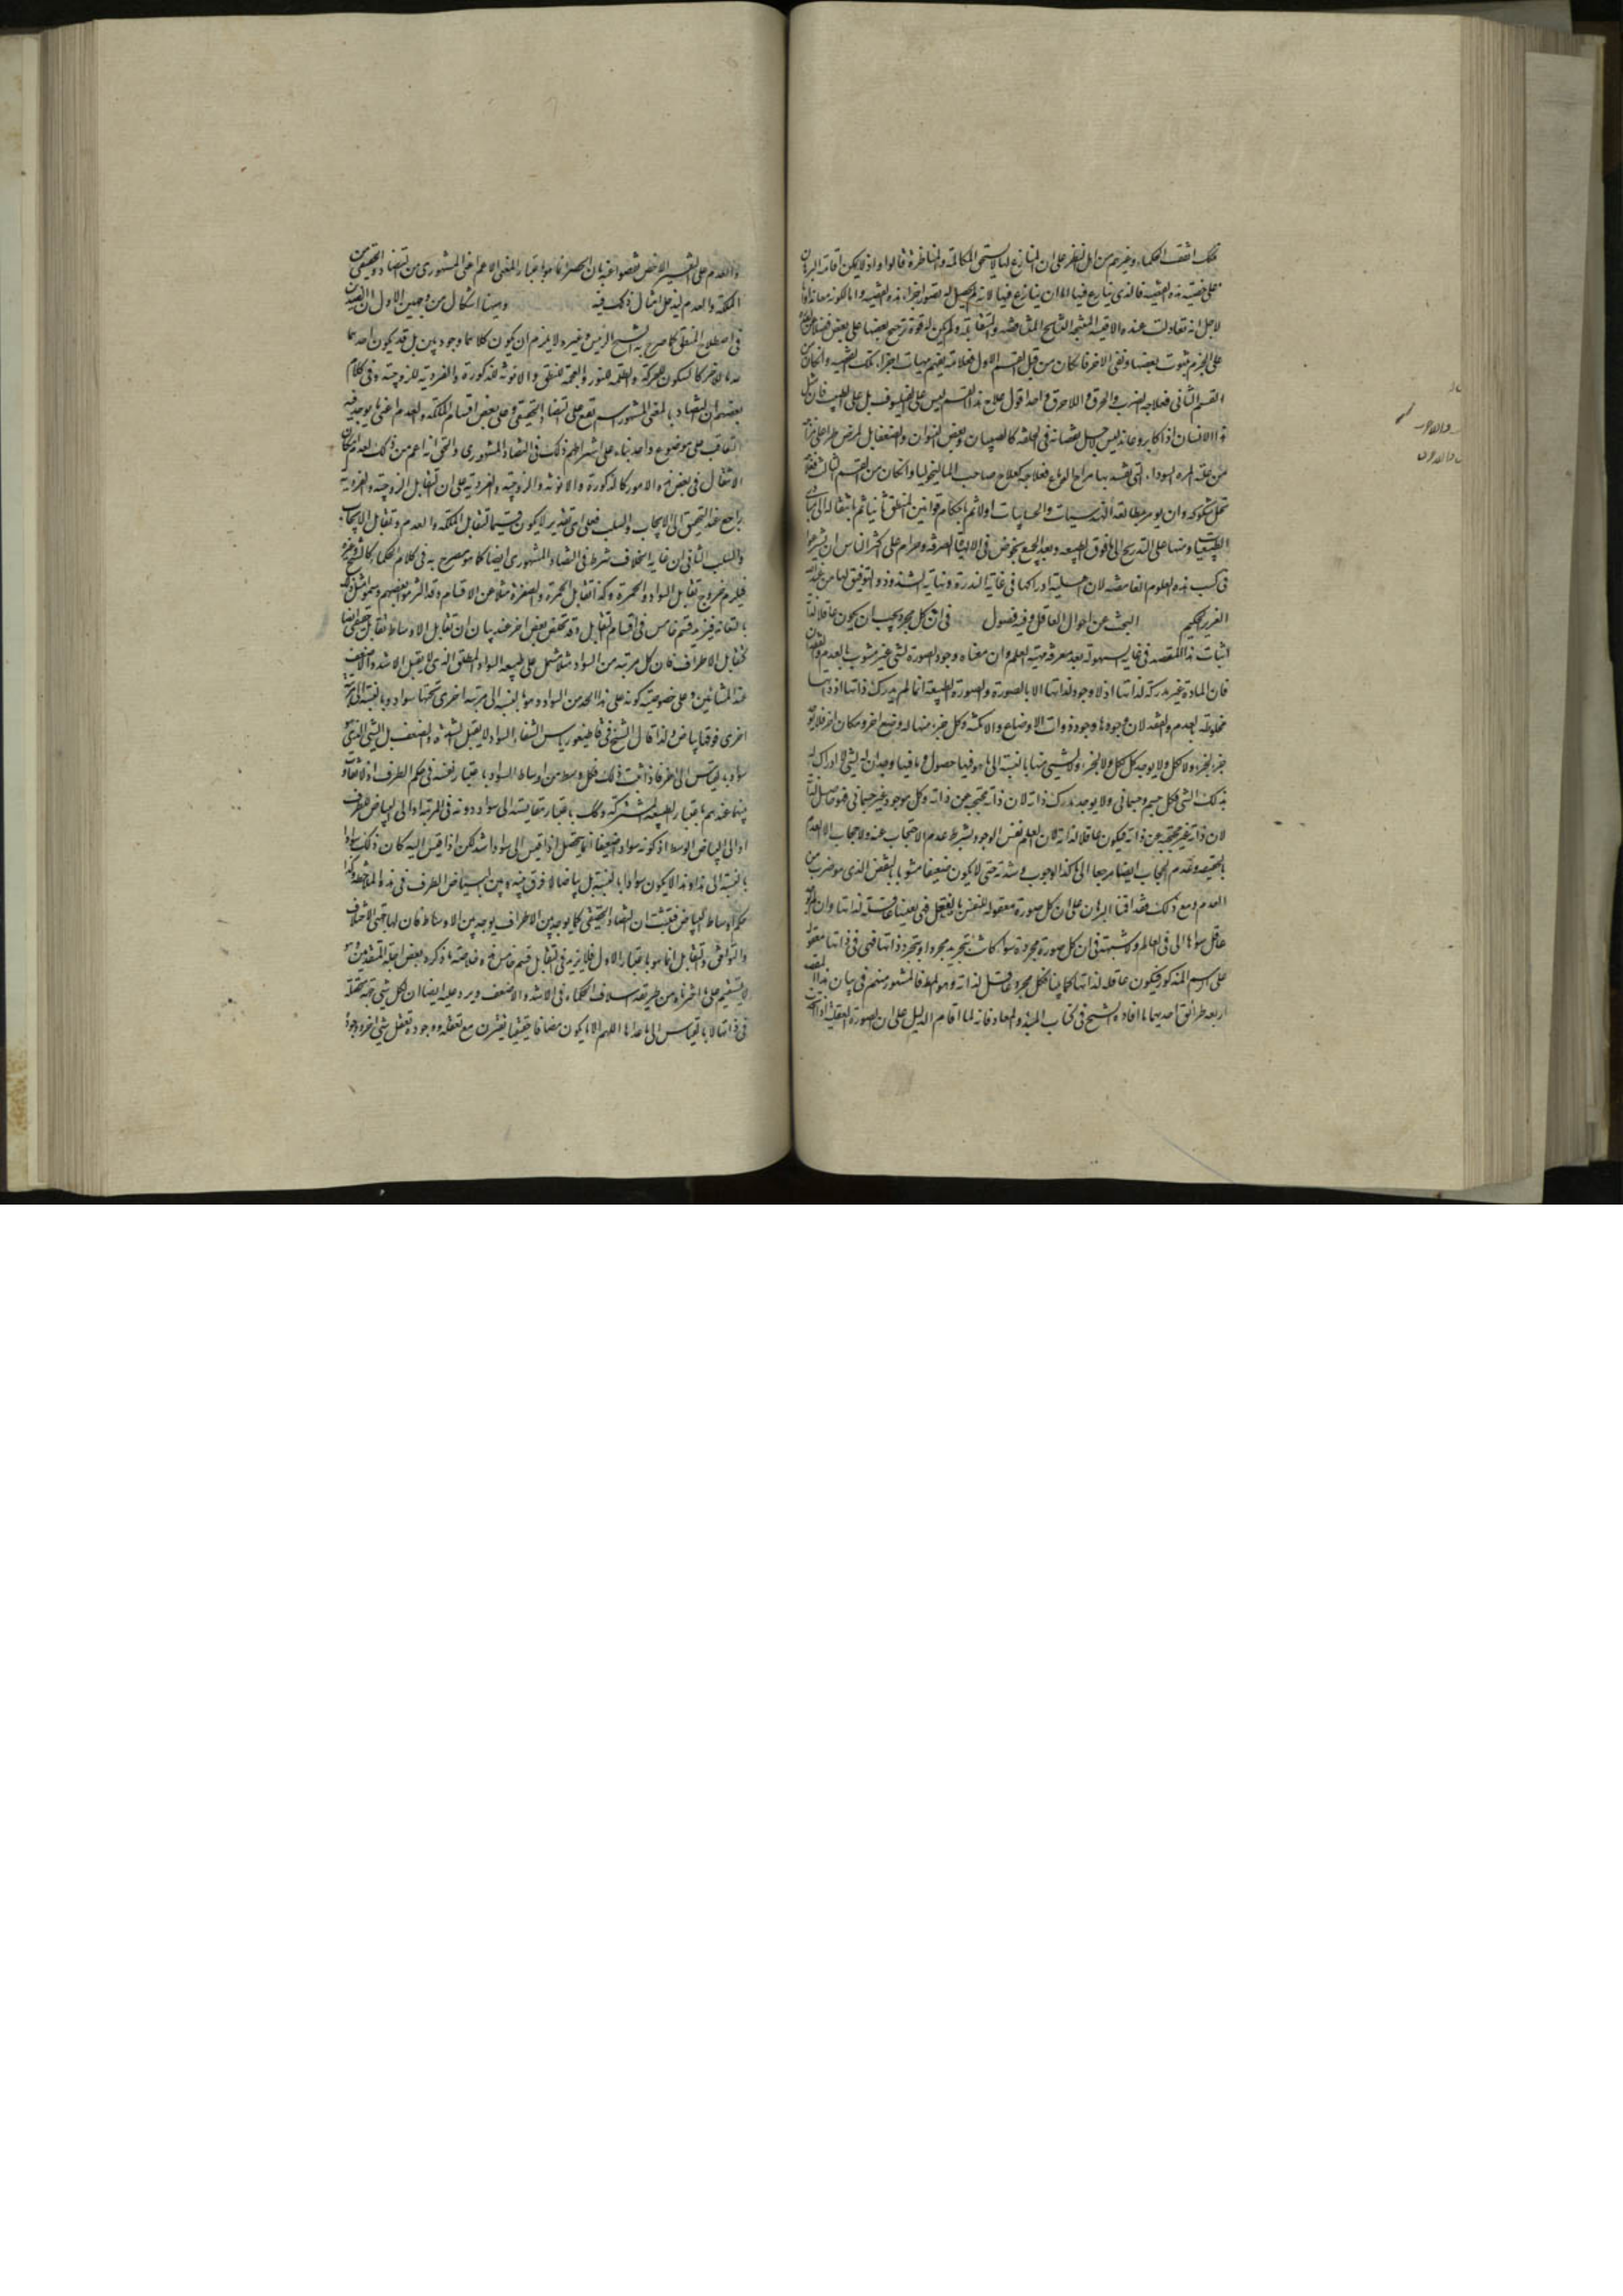 تلك اتفقت الحكماء وغيرهم من اهل النظر على ان المنازع لها لا يستحق المكالمة والمناظرة قالوا واذ لا يمكن اقامة البرهان
على حقية هذه القضية فالذي ينازع فيها اما ان ينازع فيها لانه لم يحصل له تصور اجزاء هذه القضية واما لكونه معاندا واما
لاجل انه تعادلت عنده الاقيسة المنتجة للنتائج المتناقضة والمتقابلة ولم يكن له قوة ترجيح بعضها على بعض فضلا عن
على الجزم بثبوت بعضها ونفي الاخر فان كان من قبل القسم الاول فعلاجه تفهيم مهيات اجزاء تلك القضية وان كان من
القسم الثاني فعلاجه الضرب والحرق واللاحرق واحد اقول علاج هذا القسم ليس على الفيلسوف بل على الطبيب فان مثل
هذا الانسان اذا كابر وعاند ليس لاجل نقصانه في الخلقة كالصبيان وبعض النسوان والضعفاء بل لمرض طرا على مزاجه
من غلبة المرة السوداء التي يفسد بها مزاج الدماغ فعلاجه كعلاج صاحب الماليخوليا وان كان من القسم الثالث فعلاجه
حل شكوكه وان يؤمر بمطالعة الهندسيات والحسابيات اولا ثم باحكام قوانين المنطق ثانيا ثم بانتقاله الى مبادي
الطبيعيات ومنها على التدريج الى ما فوق الطبيعة وبعد الجميع يخوض في الالهيات الصرفة وحرام على اكثر الناس ان يشرعوا
في كسب هذه العلوم الغامضة لان اهلية ادراكها في غاية الندرة ونهاية الشذوذ والتوفيق لها من عند الله
العزيز الحكيم البحث عن احوال العاقل وفيه فصول في ان كل مجرد يجب ان يكون عاقلا لذاته
اثبات هذا المقصد في غاية السهولة بعد معرفة مهية العلم وان معناه وجود الصورة لشي غير مشوب بالعدم والفقدان
فان المادة غير مدركة لذاتها اذ لا وجود لذاتها الا بالصورة والصورة الطبيعية انما لم يدرك ذاتها اذ ذاتها
مخلوطة بالعدم والفقد لان وجودها وجود ذوات الاوضاع والامكنة وكل جزء منها له وضع اخر ومكان اخر فلا يوجد
جزء لجزء ولا كل لكل ولا يوجد كل لكل ولا لجزء ولا لشيء منها بالنسبة الى ما هو فيها حصول وما فيها وجدان له الشي لا ادراك له
بذلك الشي فكل جسم وجسماني ولا يوجد يدرك ذاته لان ذاته محتجبة عن ذاته وكل موجود غير جسماني فهو حاصل لذاته
لان ذاته غير محتجبة عن ذاته فيكون عاقلا لذاته لان العلم نفس الوجود بشرط عدم الاحتجاب عنه ولا حجاب الا العدم
بالحقيقة وعدم الحجاب ايضا مرجعا الى تاكد الوجوب وشدته حتى لا يكون ضعيفا مشوبا بالنقص الذي هو ضرب من
العدم ومع ذلك فقد اقمنا البرهان على ان كل صورة معقولة للنفس بالفعل فهي بعينها عاقلة لذاتها وان لم يوجد
عاقل سواها الى في العالم ولا شبهة في ان كل صورة مجردة سواء كانت بتجريد مجرد او بتجرد ذاتها فهي في ذاتها معقولة
على الرسم المذكور فيكون عاقلة لذاتها كما بينا فكل مجرد عاقل لذاته وهو المط فالمشهور منهم في بيان هذا المقصد
اربعة طرائق احديها ما افاده الشيخ في كتاب المبدء والمعاد فانه لما اقام الدليل على ان الصورة العقلية اذا اتحدت
والعدم على التفسير الاخص فتفصوا عنه بان الحصر انما هو باعتبار المعنى الاعم اعني المشهوري من التضاد والحقيقي من
الملكة والعدم ليدخل امثال ذلك فيه وهيهنا اشكال من وجهين الاول ان الضدين
في اصطلاح المنطق كما صرح به الشيخ الرئيس وغيره لا يلزم ان يكون كلاهما وجوديين بل قد يكون احدهما
عدما للاخر كالسكون للحركة والظلمة للنور والعجمة للنطق والانوثة للذكورة والفردية للزوجية وفي كلام
بعضهم ان التضاد بالمعنى المشهور اسم يقع على التضاد الحقيقي وعلى بعض اقسام الملكة والعدم اعني ما يوجد فيه
التعاقب على موضوع واحد بناء على اشتراطهم ذلك في التضاد المشهوري والحق انه اعم من ذلك لعدم امكان
الانتقال في بعض هذه الامور كالذكورة والانوثة والزوجية والفردية على ان تقابل الزوجية والفردية
راجع عند التحقيق الى الايجاب والسلب فعلى اي تقدير لا يكون قسيما لتقابل الملكة والعدم وتقابل الايجاب
والسلب الثاني ان غاية الخلاف شرط في التضاد المشهوري ايضا كما هو مصرح به في كلام الحكماء كالشيخ وغيره
فيلزم خروج تقابل السواد والحمرة وكذا تقابل الحمرة والصفرة مثلا عن الاقسام وقد التزمه بعضهم وسموا مثل ذلك
بالتعاند فيزيد قسم خامس في اقسام التقابل وقد تمحض بعض اخر عنه ببيان ان تقابل الاوساط تقابل حقيقي ايضا
كتقابل الاطراف فان كل مرتبة من السواد مثلا تشتمل على طبيعة السواد المطلق الذي لا يقبل الاشد والاضعف
عند المشائين وعلى خصوصية كونه على هذا الحد من السواد وهو بالنسبة الى مرتبة اخرى تحتها سواد وبالنسبة الى مرتبة
اخرى فوقها بياض ولذا قال الشيخ في قاطيغورياس الشفاء السواد لا يقبل الشدة والضعف بل الشي الذي هو
سواد بالقياس الى طرف اذا ثبت ذلك فكل وسط من اوساط السواد باعتبار نفسه في حكم الطرف اذ لا تفاوت
بينها عندهم باعتبار الطبيعة المشتركة وكك باعتبار مقايسته الى سواد دونه في المرتبة او الى البياض الطرف
او الى البياض الوسط اذ كونه سوادا ضعيفا انما يحصل اذا قيس الى سواد اشد لكن اذا قيس اليه كان ذلك سوادا
بالنسبة الى هذا وهذا لا يكون سوادا بالنسبة بل بياضا لا فرق بينه وبين البياض الطرف في هذه الملاحظة وكذا
حكم اوساط البياض فتثبت ان التضاد الحقيقي كما يوجد بين الاطراف يوجد بين الاوساط فان لها جهتي الاختلاف
والتوافق والتقابل انما هو باعتبار الاول فلا يزيد في التقابل قسم خامس هذا خلاصة ما ذكره بعض اجلة المتقدمين وهو
لا يستقيم على ما اخترناه من طريقة اسلاف الحكماء في الاشد والاضعف ويرد عليه ايضا ان لكل شي مهية متحصلة
في ذاتها لا بالقياس الى ما عداها اللهم الا ما يكون مضافا حقيقيا يقترن مع تعقله ووجوده تعقل شي اخر ووجوده